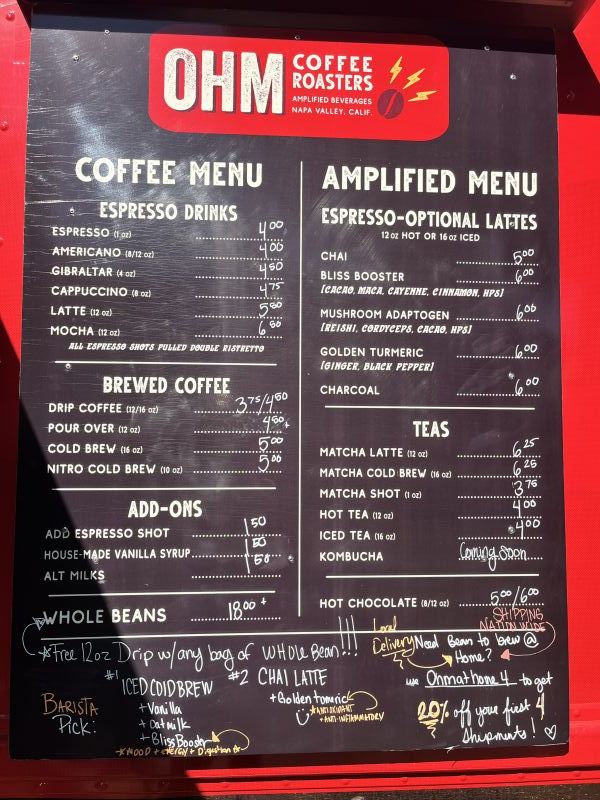 OHM COFFEE ROASTERS
AMPLIFIED BEVERAGES
NAPA VALLEY, CALIF.
COFFEE MENU
ESPRESSO DRINKS
ESPRESSO (1 oz) 4.00
AMERICANO (8/12 oz) 4.00
GIBRALTAR (4 oz) 4.50
CAPPUCCINO (8 oz) 4.75
LATTE (12 oz) 5.50
MOCHA (12 oz) 6.50
ALL ESPRESSO SHOTS PULLED DOUBLE RISTRETTO
BREWED COFFEE
DRIP COFFEE (12/16 oz) 3.75/4.50
POUR OVER (12 oz) 4.50+
COLD BREW (16 oz) 5.00
NITRO COLD BREW (10 oz) 5.00
ADD-ONS
ADD ESPRESSO SHOT 1.50
HOUSE-MADE VANILLA SYRUP .50
ALT MILKS 1.50
WHOLE BEANS 18.00+
AMPLIFIED MENU
ESPRESSO-OPTIONAL LATTES
12 oz HOT OR 16 oz ICED
CHAI 5.00
BLISS BOOSTER 6.00
[CACAO, MACA, CAYENNE, CINNAMON, HPS]
MUSHROOM ADAPTOGEN 6.00
[REISHI, CORDYCEPS, CACAO, HPS]
GOLDEN TURMERIC 6.00
[GINGER, BLACK PEPPER]
CHARCOAL 6.00
TEAS
MATCHA LATTE (12 oz) 6.25
MATCHA COLD BREW (16 oz) 6.25
MATCHA SHOT (1 oz) 3.75
HOT TEA (12 oz) 4.00
ICED TEA (16 oz) 4.00
KOMBUCHA Coming Soon
HOT CHOCOLATE (8/12 oz) 5.00/6.00
*Free 12oz Drip w/any bag of WHOLE Bean!!!
BARISTA Pick:
#1 ICED COLD BREW
+Vanilla
+Oatmilk
+Bliss Booster
*MOOD + energy + Digestion
#2 CHAI LATTE
+Golden tumeric
*ANTIOXIDANT
+ANTI-INFLAMMATORY
SHIPPING NATION WIDE
Local Delivery
Need Bean to brew @ Home?
use Ohmathome4 to get
20% off your first 4
Shipments!